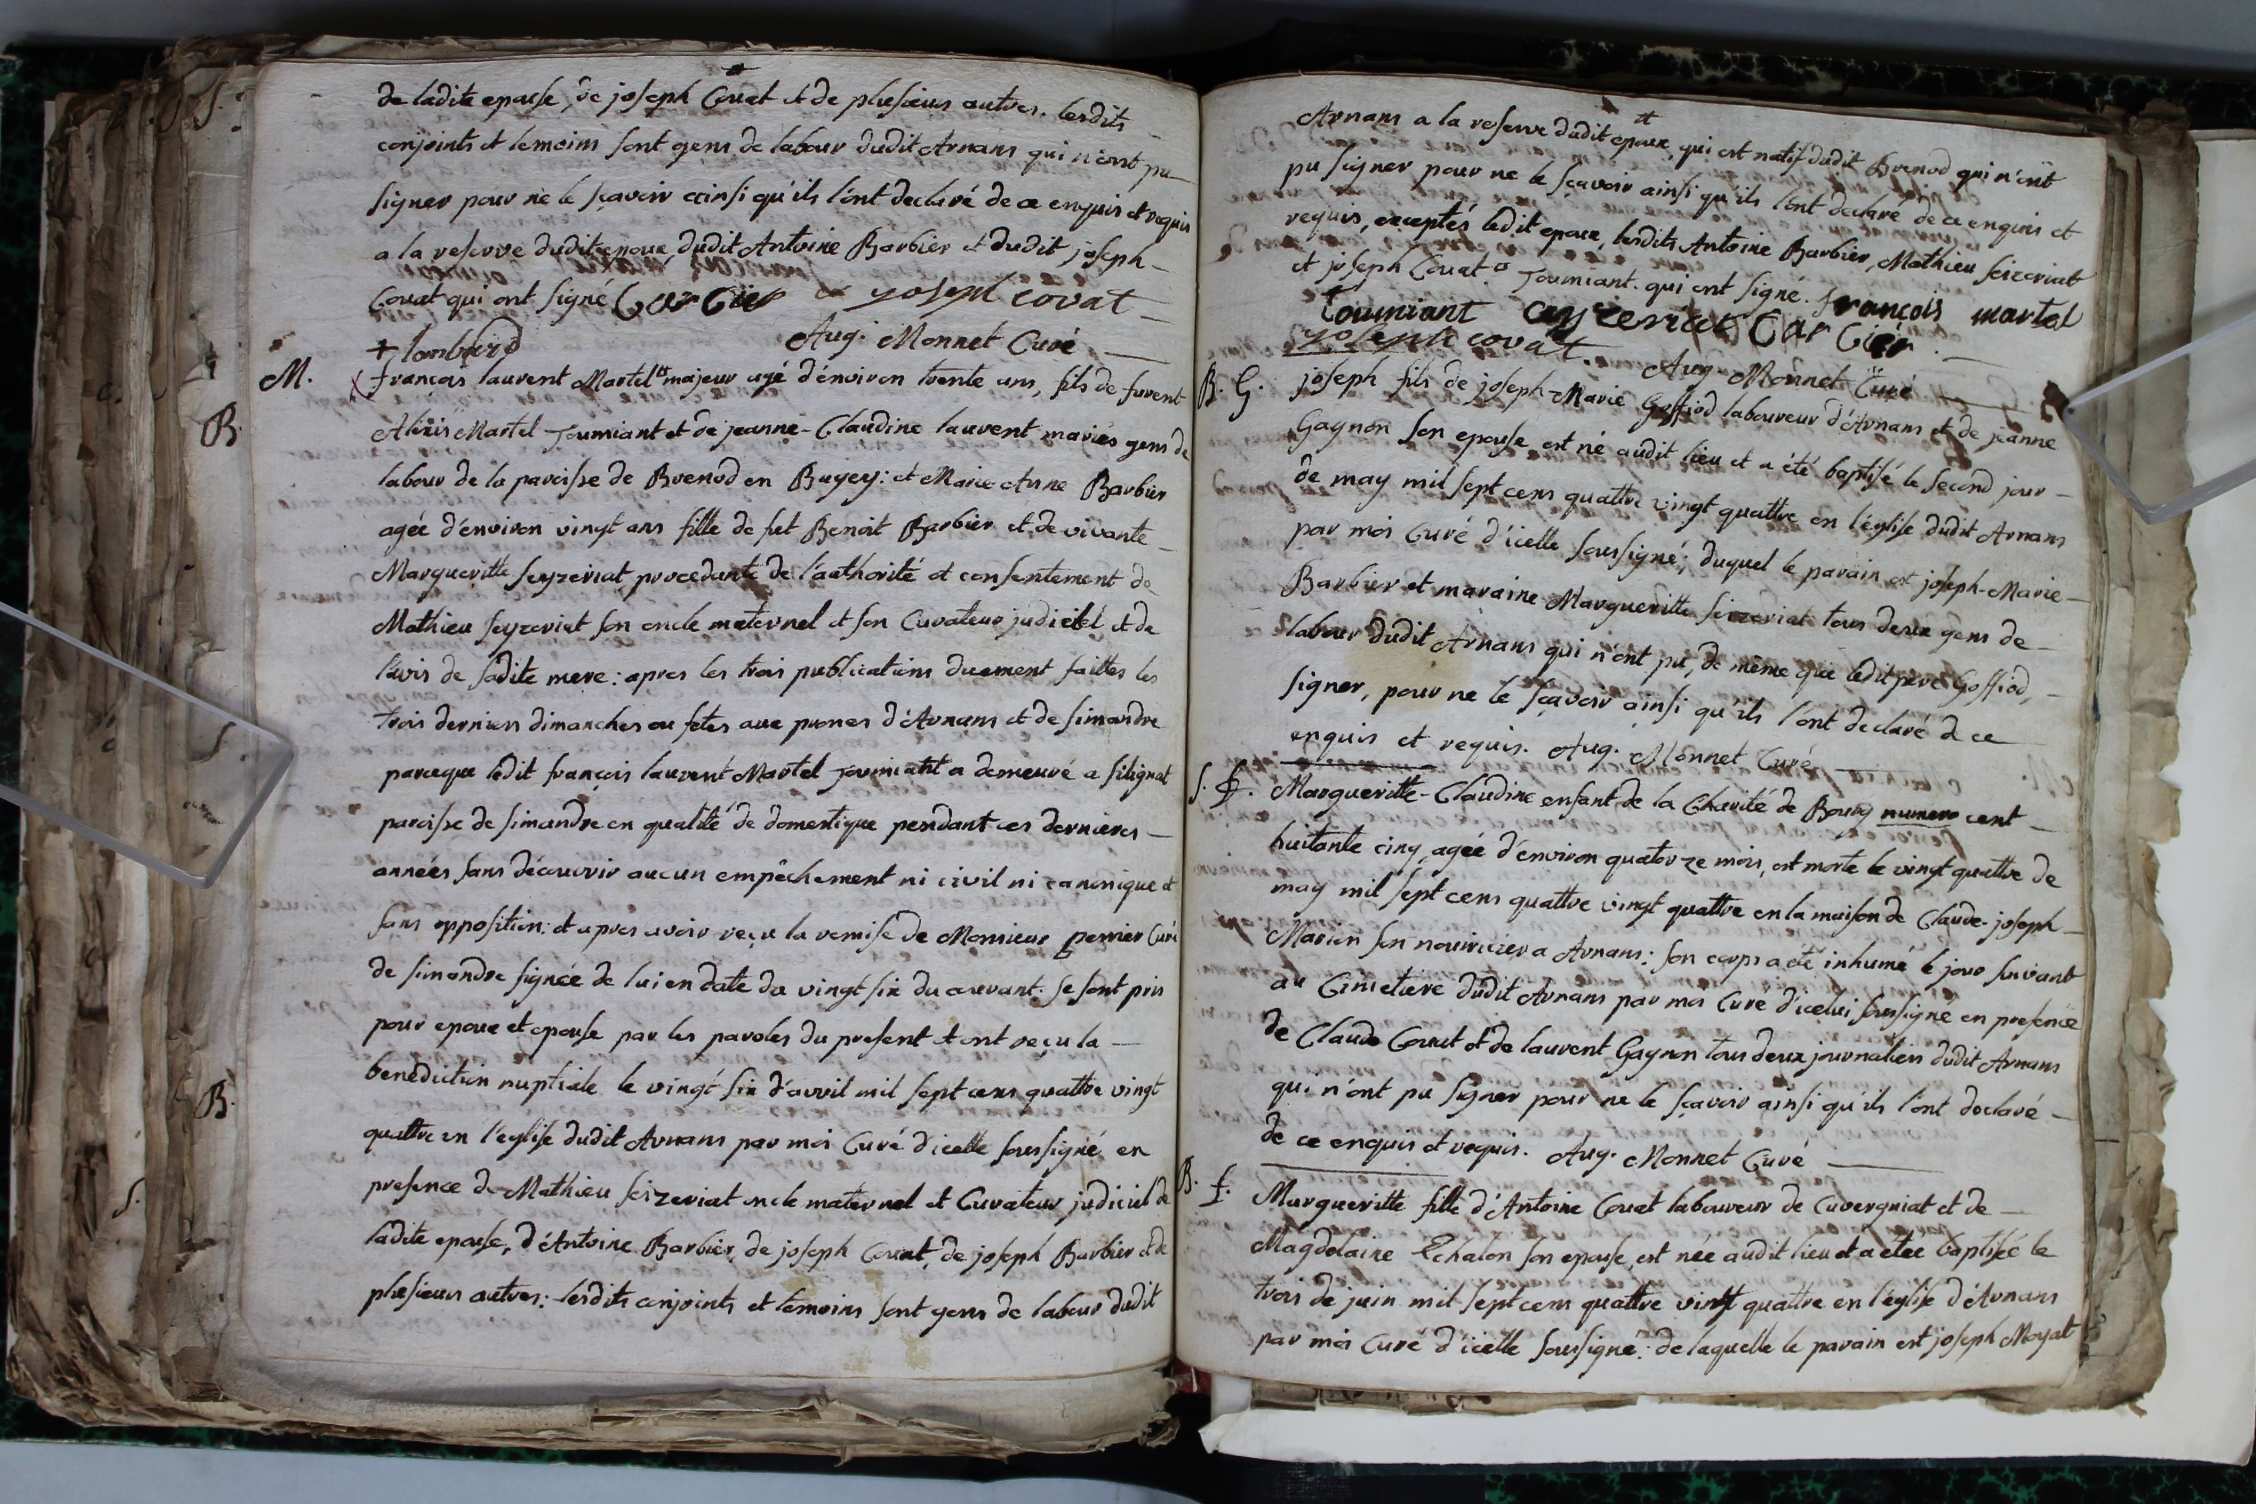 de ladite epouse, de joseph Couat et de plusieurs autres. lesdits
conjoints et temoins sont gens de labour dudit Arnans qui n'ont pu
signer pour ne le sçavoir ainsi qu'ils l'ont declaré de ce enquis et requis
a la reserve dudit epoux dudit Antoine Barbier et dudit joseph
Couat qui ont signé Barbier joseph covat
lombard Aug. Monnet Curé
M. françois laurent Martel majeur agé d'environ trente ans, fils de furent
Alexis Martel Tourniant et de jeanne-Claudine laurent mariés gens de
labour de la paroisse de Brenod en Bugey: et Marie Anne Barbier
agée d'environ vingt ans fille de fut Benoit Barbier et de vivante
Margueritte seyzeriat, procedante de l'authorité et consentement de
Mathieu seyzeriat son oncle maternel et son Curateur judiciel et de
l'avis de sadite mere: apres les trois publications duement faittes les
trois derniers dimanches ou fetes aux prones d'Arnans et de simandre
parceque ledit françois laurent Martel Tourniant a demeuré a silignat
paroisse de simandre en qualité de domestique pendant ces dernieres
années sans découvrir aucun empêchement ni civil ni canonique et
sans opposition: et apres avoir reçu la remise de Monsieur perrier Curé
de simandre signée de lui en date du vingt six du courant. se sont pris
pour epoux et epouse par les paroles du present et ont reçu la
benediction nuptiale le vingt six d'avril mil sept cens quattre vingt
quattre en l'eglise dudit Arnans par moi Curé d'icelle soussigné en
presence de Mathieu seizeriat oncle maternel et Curateur judiciel de
ladite epouse, d'Antoine Barbier, de joseph Couat, de joseph Barbier et de
plusieurs autres: lesdits conjoints et temoins sont gens de labour dudit
B.
B.
Arnans a la reserve dudit epoux, qui est natif dudit Brenod qui n'ont
pu signer pour ne le sçavoir ainsi qu'ils l'ont declaré de ce enquis et
requis, exceptés ledit epoux, lesdits Antoine Barbier, Mathieu seizeriat
et joseph Couat. Tourniant. qui ont signé. françois martel
Tourniant Seyzeriat Barbier
joseph covat. Aug. Monnet Curé
B. G. joseph fils de joseph-Marie Goffiod laboureur d'Arnans et de jeanne
Gagnon son epouse est né audit lieu et a été baptisé le second jour
de may mil sept cens quattre vingt quattre en l'eglise dudit Arnans
par moi Curé d'icelle soussigné; duquel le parain est joseph-Marie
Barbier et maraine Margueritte seizeriat tous deux gens de
labour dudit Arnans qui n'ont pu, de même que ledit pere Goffiod,
signer, pour ne le sçavoir ainsi qu'ils l'ont declaré de ce
enquis et requis. Aug. Monnet Curé
S. f. Margueritte-Claudine enfant de la Charité de Bourg numero cent
huitante cinq, agée d'environ quatorze mois, est morte le vingt quattre de
may mil sept cens quattre vingt quattre en la maison de Claude-joseph
Marion son nourricier a Arnans: son corps a été inhumé le jour suivant
au Cimetiere dudit Arnans par moi Curé d'icelui soussigné en presence
de Claude Couat et de laurent Gagnon tous deux journaliers dudit Arnans
qui n'ont pu signer pour ne le sçavoir ainsi qu'ils l'ont declaré
de ce enquis et requis. Aug. Monnet Curé
B. f. Margueritte fille d'Antoine Couat laboureur de Cuvergniat et de
Magdelaine Echalon son epouse, est née audit lieu et a eteé baptisée le
trois de juin mil sept cens quattre vingt quattre en l'eglise d'Arnans
par moi Curé d'icelle soussigné: de laquelle le parain est joseph Moyat